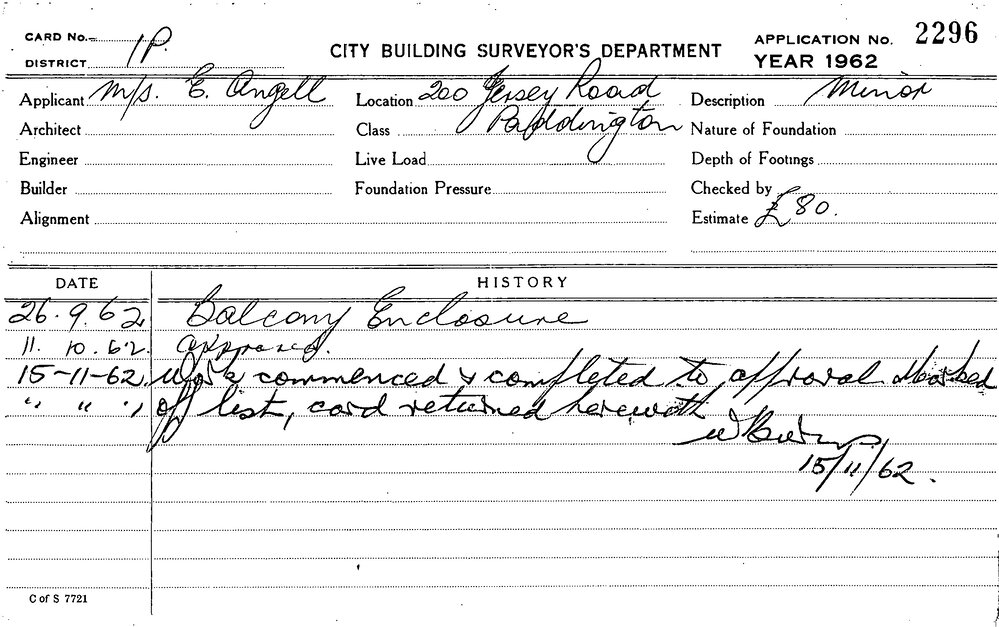 CARD No.- 1P. CITY BUILDING SURVEYOR'S DEPARTMENT APPLICATION No. 2296
DISTRICT YEAR 1962
Applicant M/s. E. Angell Location 200 Jersey Road Description Minor
Architect Class Paddington Nature of Foundation
Engineer Live Load Depth of Footings
Builder Foundation Pressure Checked by
Alignment Estimate £80.
DATE HISTORY
26.9.62 Balcony Enclosure
11.10.62. Approved.
15-11-62 Work commenced & completed to approval Marked
" " " off list, card returned herewith
15/11/62.
C of S 7721